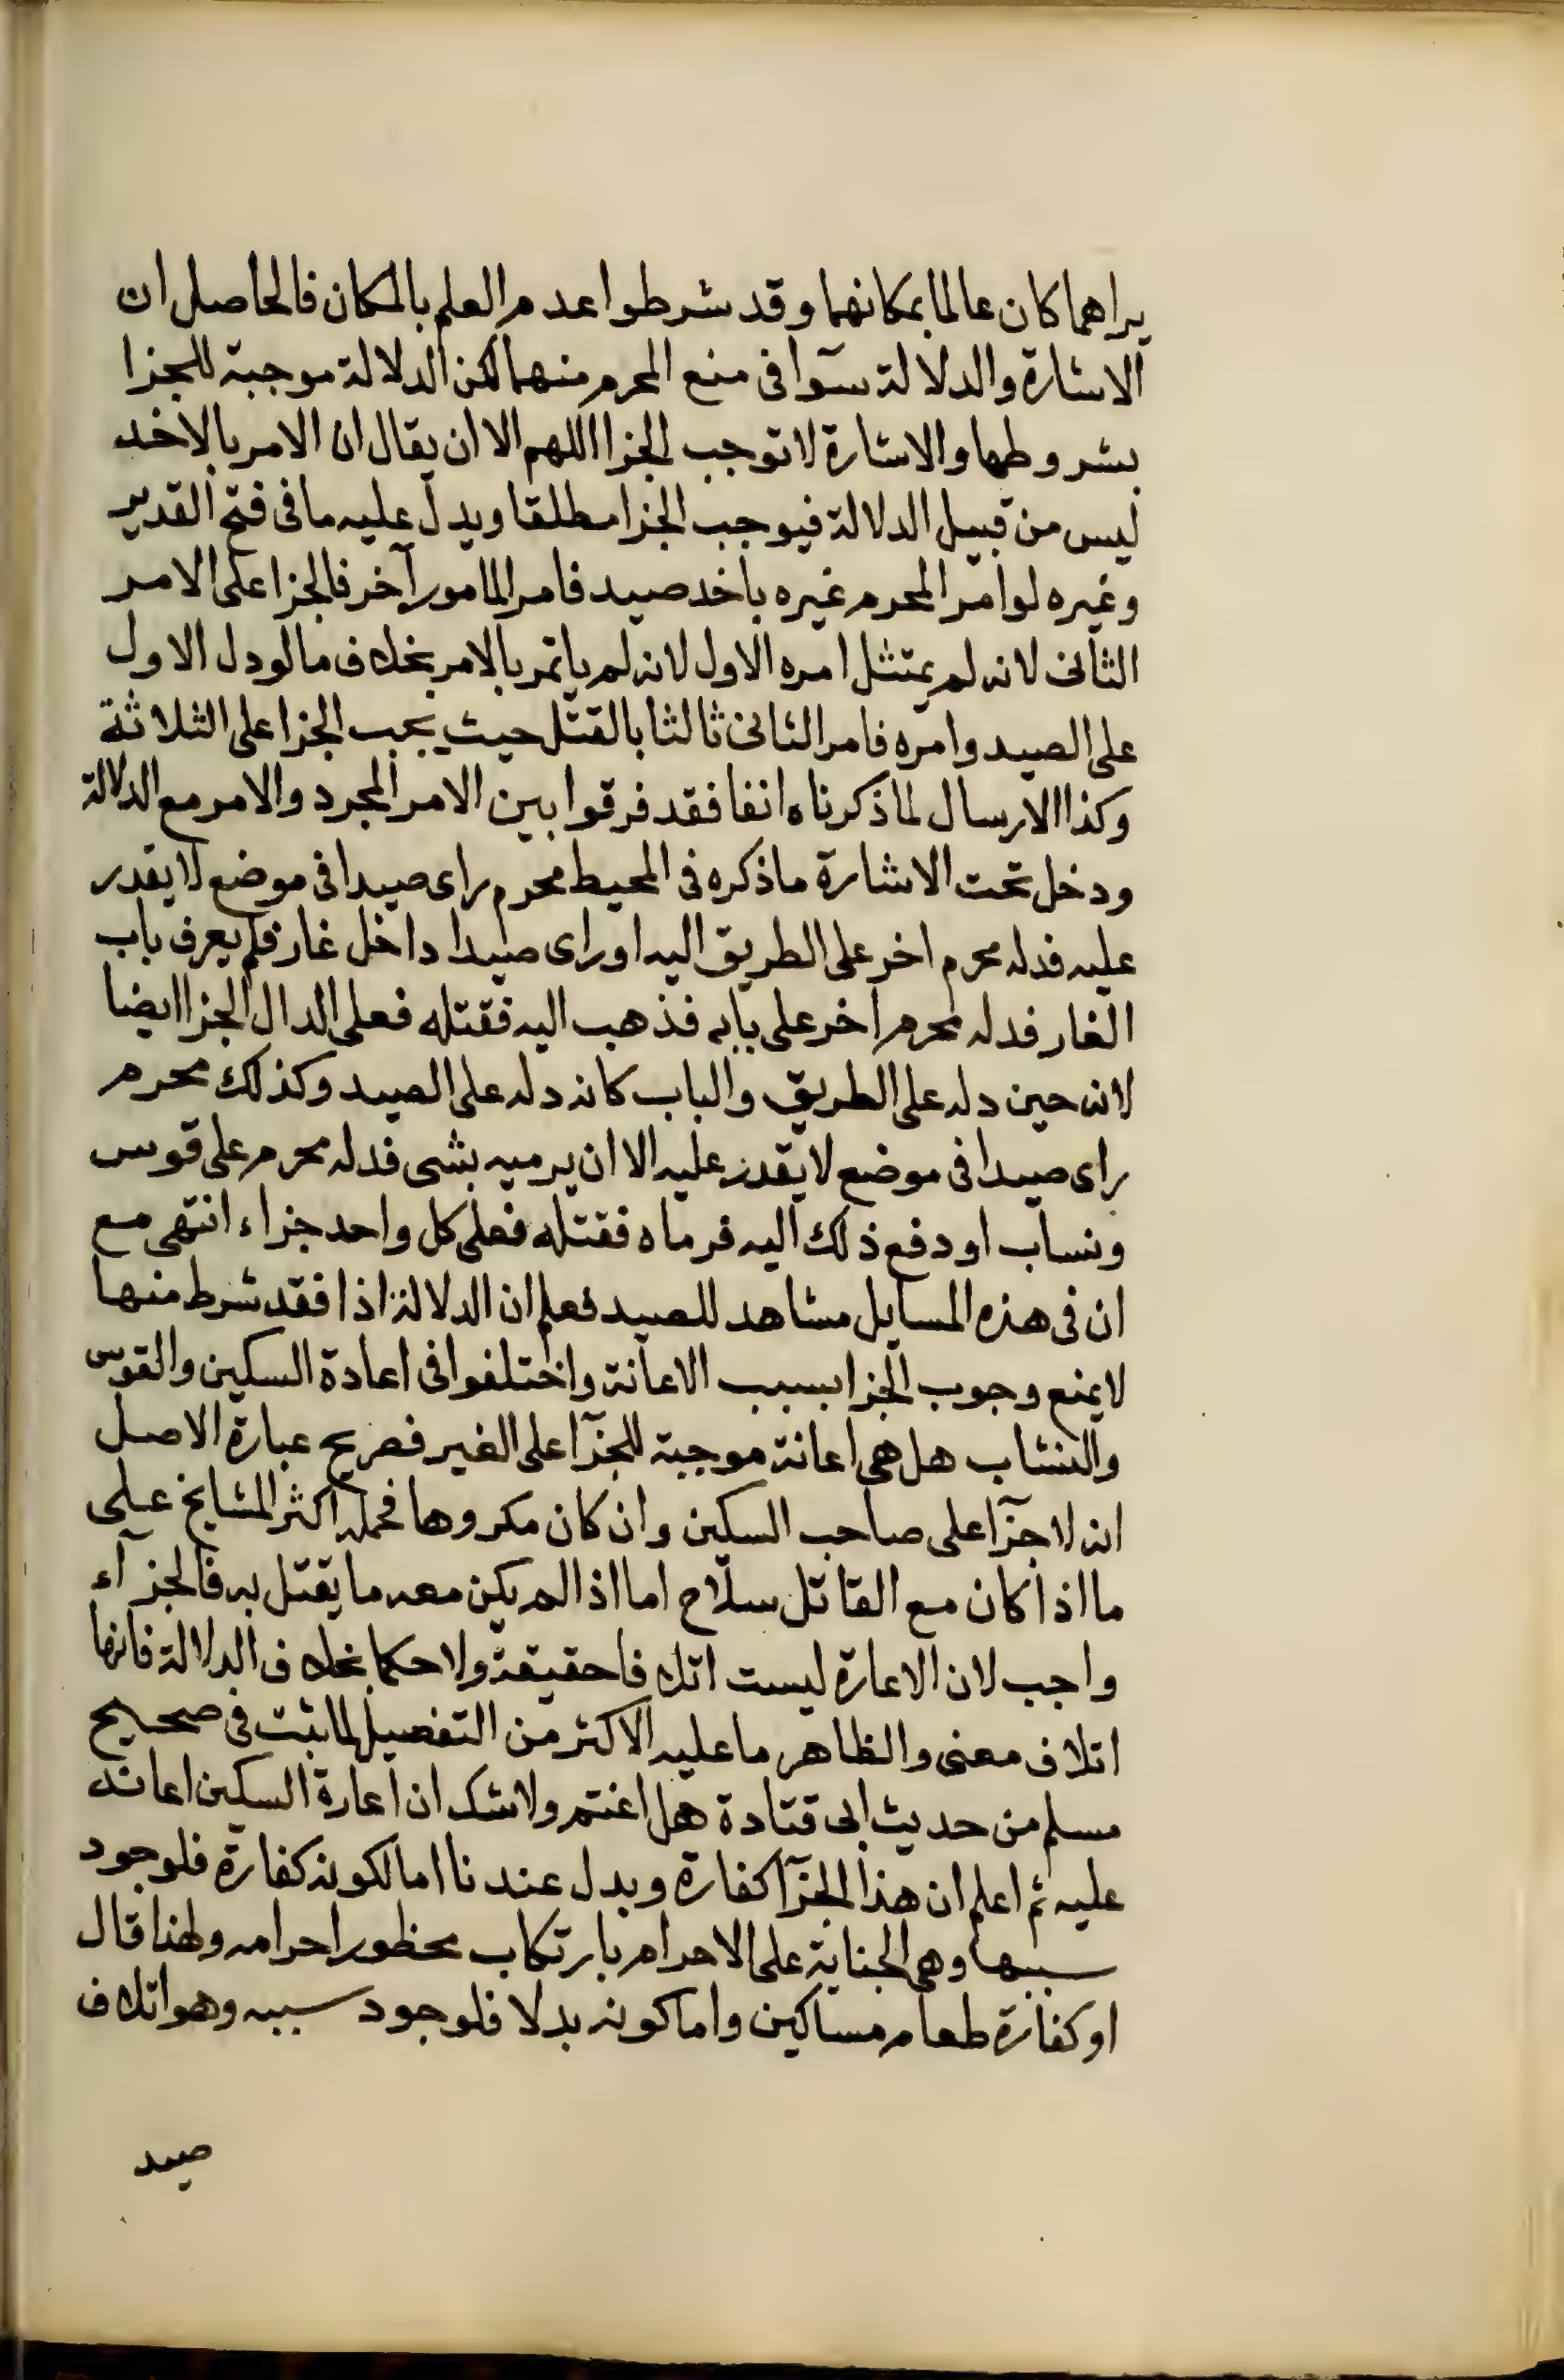 يراهما كان عالما بمكانهما وقد شرطوا عدم العلم بالمكان فالحاصل ان
الاشارة والدلالة سوآ فى منع المحرم منهما لكن الدلالة موجبة للجزا
بشروطها والاشارة لا توجب الجزا اللهم الا ان يقال ان الامر بالاخد
ليس من قبيل الدلالة فيوجب الجزا مطلقا ويدل عليه ما فى فتح القدير
وغيره لو امر المحرم غيره باخد صيد فامر المامور آخر فالجزا على الامر
الثانى لانه لم يمتثل امره الاول لانه لم ياتمر بالامر بخلاف ما لو دل الاول
على الصيد وامره فامر الثانى ثالثا بالقتل حيث يجب الجزا على الثلاثة
وكذا الارسال لما ذكرناه انفا فقد فرقوا بين الامر المجرد والامر مع الدلالة
ودخل تحت الاشارة ما ذكره فى المحيط محرم راى صيدا فى موضع لا يقدر
عليه فدله محرم اخر على الطريق اليه او راى صيدا داخل غار فلم يعرف باب
الغار فدله محرم اخر على بابه فذهب اليه فقتله فعلى الدال الجزا ايضا
لانه حين دله على الطريق والباب كانه دله على الصيد وكذلك محرم
راى صيدا فى موضع لا يقدر عليه الا ان يرميه بشى فدله محرم على قوس
ونساب او دفع ذلك اليه فرماه فقتله فعلى كل واحد جزاء انتهى مع
ان فى هذه المسايل مشاهد للصيد فعلم ان الدلالة اذا فقد شرط منها
لا يمنع وجوب الجزا بسبب الاعانة واختلفوا فى اعادة السكين والقوس
والنشاب هل هى اعانة موجبة للجزآ على الغير فصريح عبارة الاصل
انه لا جزآ على صاحب السكين وان كان مكروها فحمله اكثر المشايخ على
ما اذا كان مع القاتل سلاح اما اذا لم يكن معه ما يقتل به فالجزآء
واجب لان الاعارة ليست اتلافا حقيقة ولا حكما بخلاف الدلالة فانها
اتلاف معنى والظاهر ما عليه الاكثر من التفصيل لما ثبت فى صحيح
مسلم من حديث ابى قتادة هل اغتم ولا شك ان اعارة السكين اعانة
عليه ثم اعلم ان هذا الجزآ كفارة وبدل عندنا اما لكونه كفارة فلوجود
سببها وهى الجناية على الاحرام بارتكاب محظور احرامه ولهذا قال
او كفارة طعام مساكين واما كونه بدلا فلوجود سببه وهو اتلاف
صيد